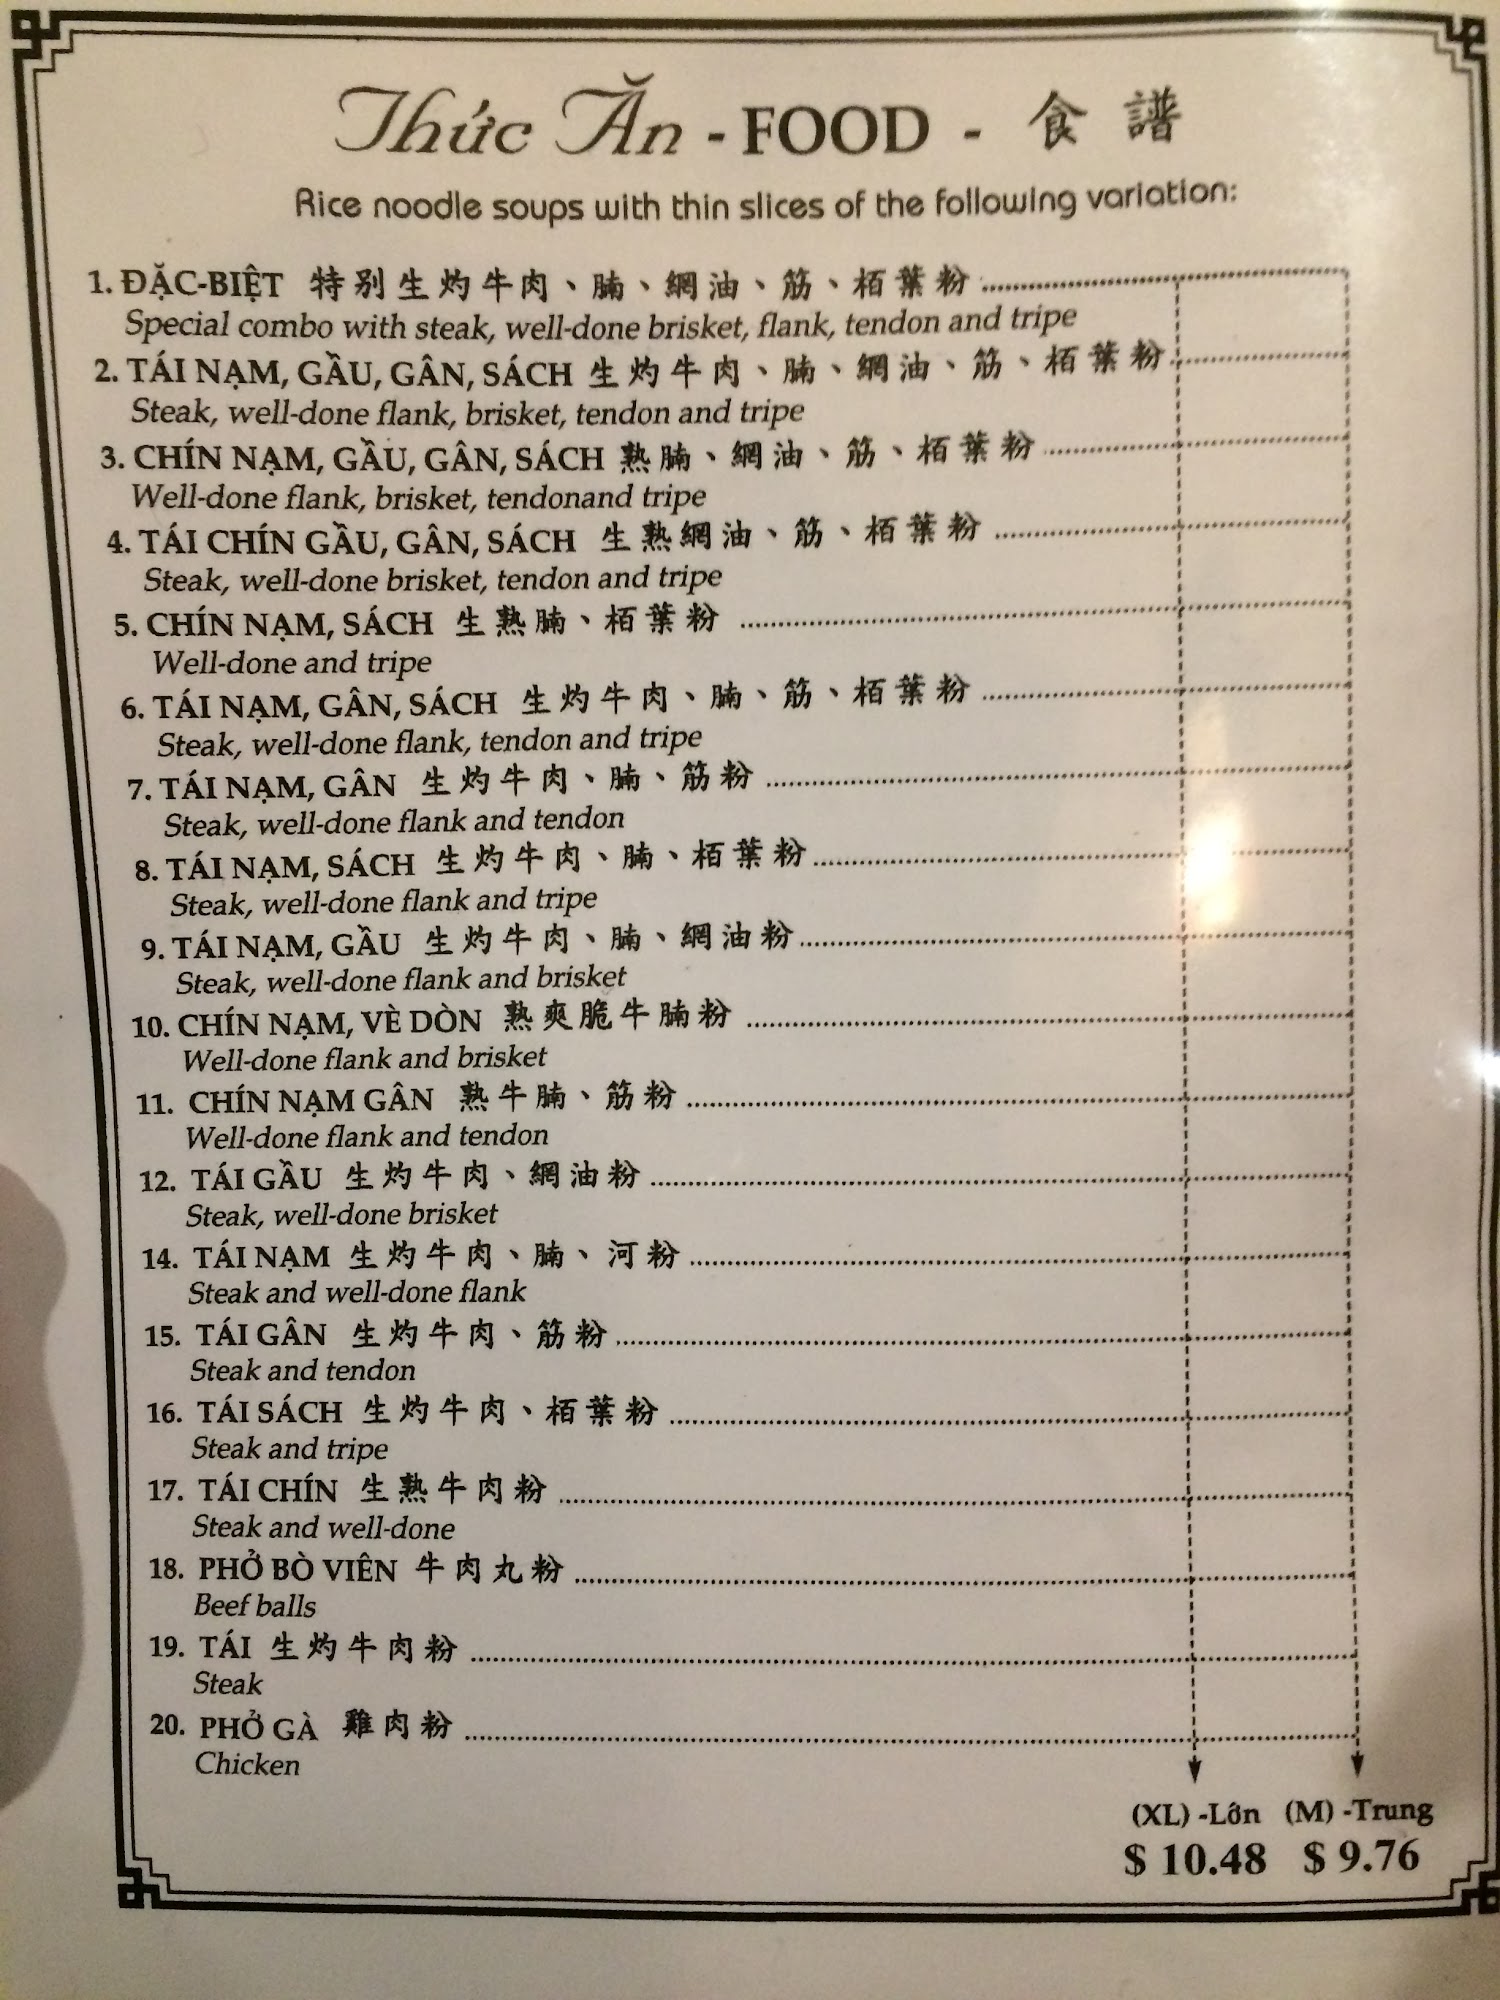 Thức Ăn - FOOD - 食譜
Rice noodle soups with thin slices of the following variation:
1. ĐẶC-BIỆT 特别生灼牛肉、腩、網油、筋、栢葉粉
Special combo with steak, well-done brisket, flank, tendon and tripe
2. TÁI NẠM, GẦU, GÂN, SÁCH 生灼牛肉、腩、網油、筋、栢葉粉
Steak, well-done flank, brisket, tendon and tripe
3. CHÍN NẠM, GẦU, GÂN, SÁCH 熟腩、網油、筋、栢葉粉
Well-done flank, brisket, tendonand tripe
4. TÁI CHÍN GẦU, GÂN, SÁCH 生熟網油、筋、栢葉粉
Steak, well-done brisket, tendon and tripe
5. CHÍN NẠM, SÁCH 生熟腩、栢葉粉
Well-done and tripe
6. TÁI NẠM, GÂN, SÁCH 生灼牛肉、腩、筋、栢葉粉
Steak, well-done flank, tendon and tripe
7. TÁI NẠM, GÂN 生灼牛肉、腩、筋粉
Steak, well-done flank and tendon
8. TÁI NẠM, SÁCH 生灼牛肉、腩、栢葉粉
Steak, well-done flank and tripe
9. TÁI NẠM, GẦU 生灼牛肉、腩、網油粉
Steak, well-done flank and brisket
10. CHÍN NẠM, VÈ DÒN 熟爽脆牛腩粉
Well-done flank and brisket
11. CHÍN NẠM GÂN 熟牛腩、筋粉
Well-done flank and tendon
12. TÁI GẦU 生灼牛肉、網油粉
Steak, well-done brisket
14. TÁI NẠM 生灼牛肉、腩、河粉
Steak and well-done flank
15. TÁI GÂN 生灼牛肉、筋粉
Steak and tendon
16. TÁI SÁCH 生灼牛肉、栢葉粉
Steak and tripe
17. TÁI CHÍN 生熟牛肉粉
Steak and well-done
18. PHỞ BÒ VIÊN 牛肉丸粉
Beef balls
19. TÁI 生灼牛肉粉
Steak
20. PHỞ GÀ 雞肉粉
Chicken
(XL) -Lớn (M) -Trung
$ 10.48 $ 9.76